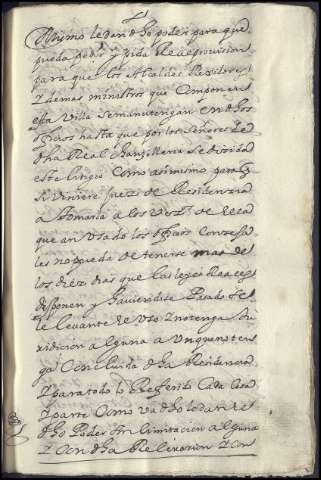 Assimismo le dan dho poder para que
pueda pedir y pida Real provision
para que los Alcaldes Rexidores
y demas ministros que componen
esta Villa se mantengan en dhos
oficios hasta que por los Señores de
dha Real Chanzilleria se dezida
este litigio como asimismo para q
si viniere Juez de Residencia
a tomarla a los Vezos de ella
que an usado los oficios Conzejiles
les no pueda detenerse mas de
los diez dias que las leyes Reales
disponen y haviendose Pasado se
le levante de Uso y no tenga Ju
risdicion alguna aunque no ten
ga Concluida dha Residencia
y para todo lo Referido Cada Cosa
y parte Como va dho le dan este
dho Poder sin limitacion alguna
y con dha Relevacion y con